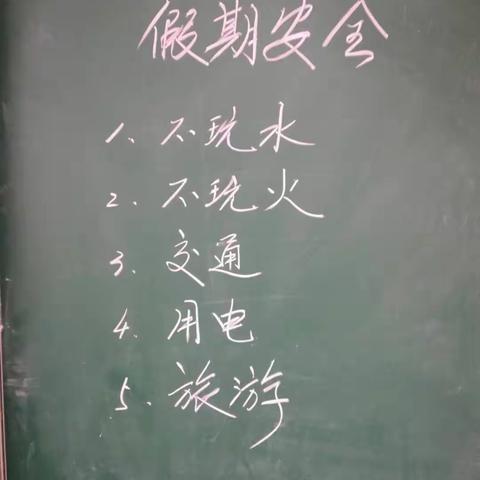 假期安全
1、不玩水
2．不玩火
3．交通
4．用电
5．旅游